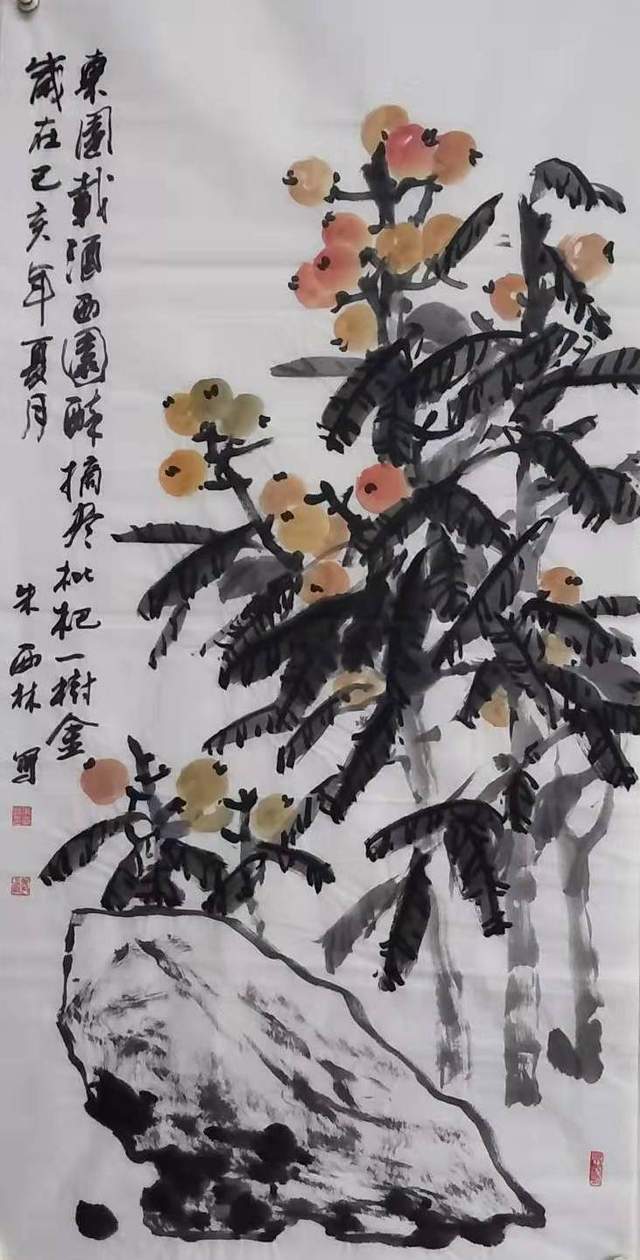 東園載酒西園醉摘尽枇杷一樹金
歲在己亥年夏月
朱西林
写